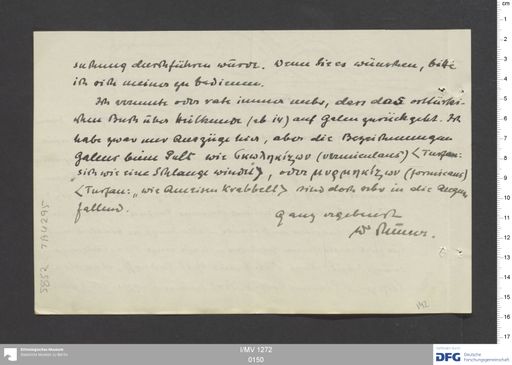 suchung durchführen würde. Wenn Sie es wünschen, bitte
ich sich meiner zu bedienen.
Ich vermute oder rate immer mehr, dass das osttürki-
sche Buch über Heilkunde (eb IV) auf Galen zurückgeht. Ich
habe zwar nur Auszüge hier, aber die Bezeichnungen
Galens beim Puls wie σκωληκίζων (vermiculans) <Turfan:
"sich wie eine Schlange windet">, oder μυρμηκίζων (formicans)
<Turfan: "wie Ameisen Krabbelt"> sind doch sehr in die Augen
fallend.
Ganz ergebenst
5852 7A4295
142
Ethnologisches Museum
Staatliche Museen zu Berlin
I/MV 1272
0150
DFG Deutsche
Forschungsgemeinschaft
cm
1
2
3
4
5
6
7
8
9
10
11
12
13
14
15
16
17